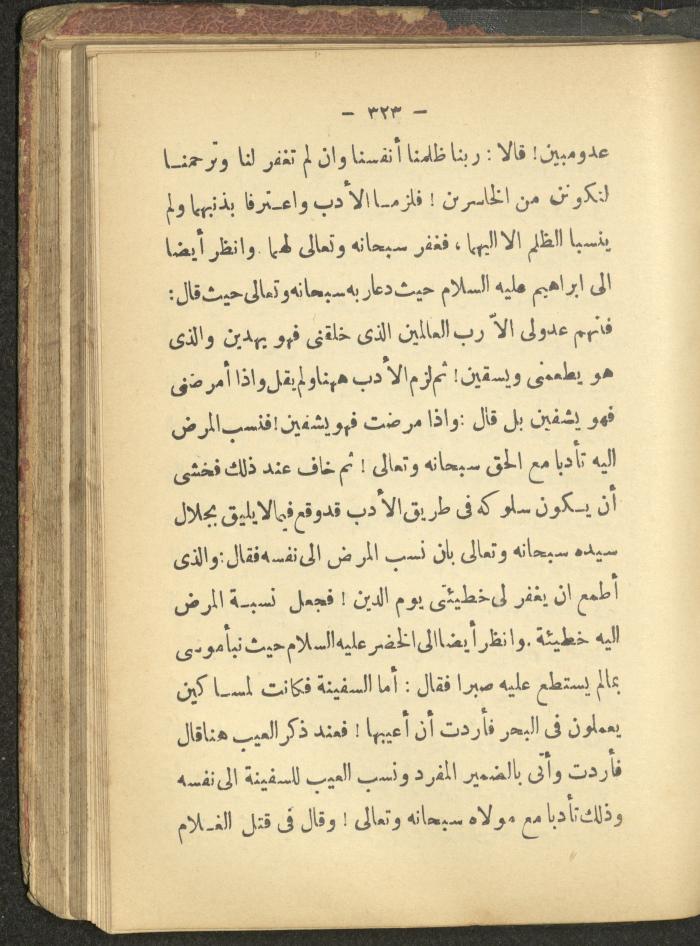 – ٣٢٣ –
عدو مبين! قالا : ربنا ظلمنا أنفسنا وان لم تغفر لنا وترحمنا
لنكونن من الخاسرين ! فلزما الأدب واعترفا بذنبهما ولم
ينسبا الظلم الا اليهما ، فغفر سبحانه وتعالى لهما . وانظر أيضا
الى ابراهيم عليه السلام حيث دعا ربه سبحانه وتعالى حيث قال :
فانهم عدولى الاّ رب العالمين الذى خلقنى فهو يهدين والذى
هو يطعمنى ويسقين! ثم لزم الأدب ههنا ولم يقل واذا أمرضنى
فهو يشفين بل قال :واذا مرضت فهو يشفين!فنسب المرض
اليه تأدبا مع الحق سبحانه وتعالى ! ثم خاف عند ذلك فخشى
أن يكون سلوكه فى طريق الأدب قدوقع فيما لا يليق بجلال
سيده سبحانه وتعالى بان نسب المرض الى نفسه فقال :والذى
أطمع ان يغفر لى خطيئتى يوم الدين ! فجعل نسبة المرض
اليه خطيئة .وانظر أيضا الى الخضر عليه السلام حيث نبأ موسى
بمالم يستطع عليه صبرا فقال : أما السفينة فكانت لمساكين
يعملون فى البحر فأردت أن أعيبها ! فعند ذكر العيب هنا قال
فأردت وأتى بالضمير المفرد ونسب العيب للسفينة الى نفسه
وذلك تأدبا مع مولاه سبحانه وتعالى ! وقال فى قتل الغلام